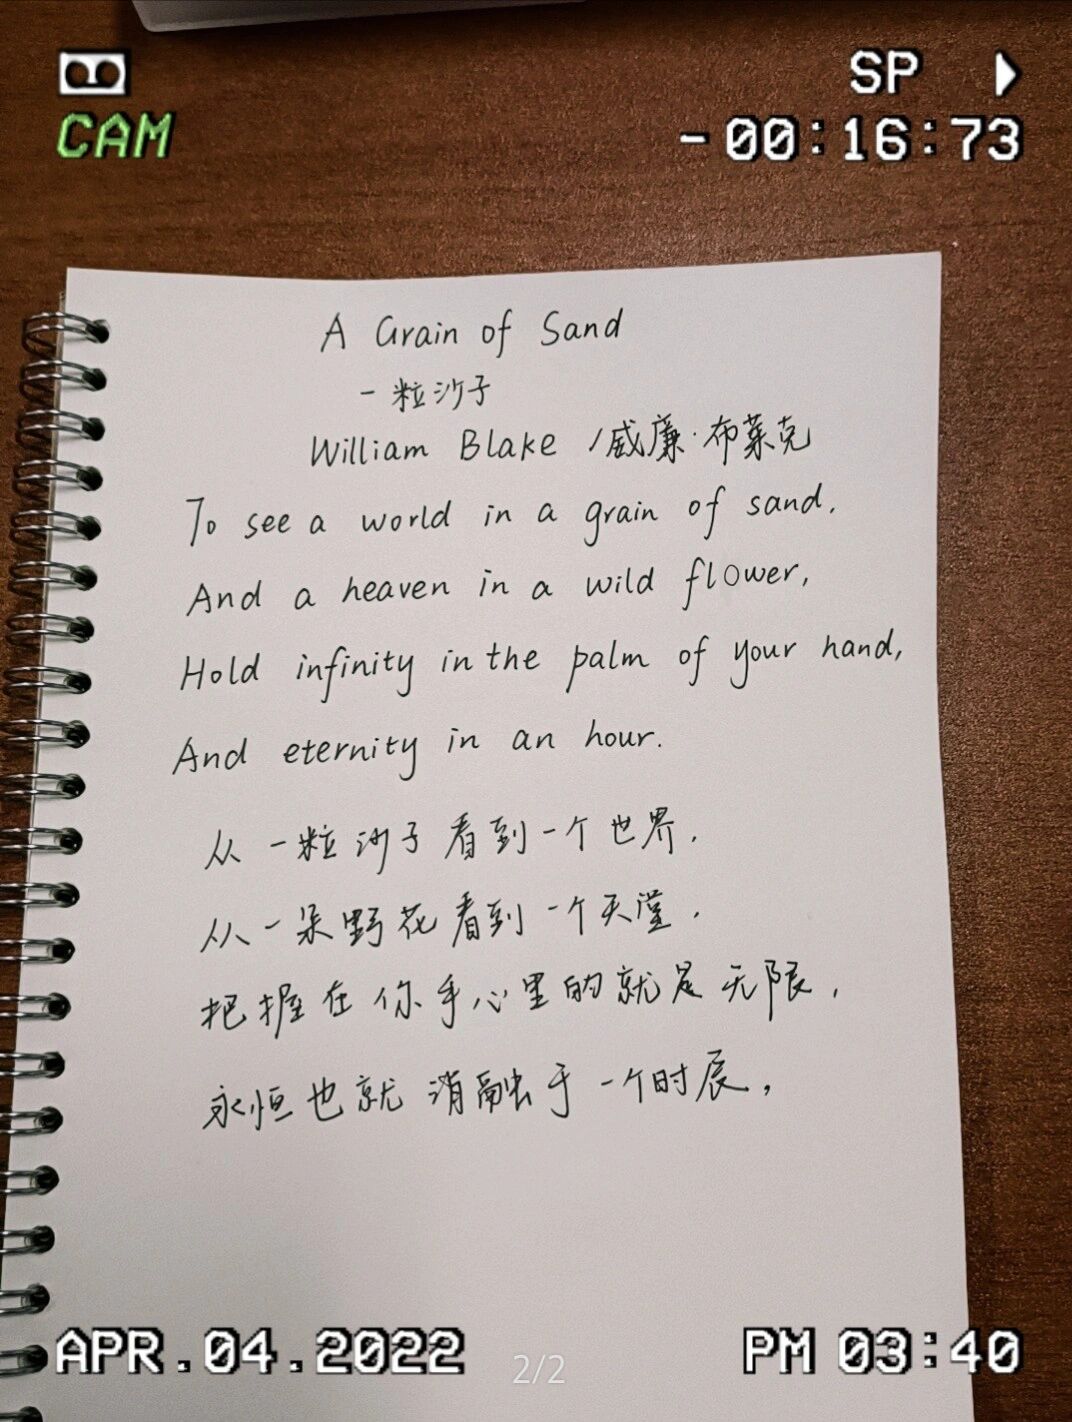 SP
CAM
-00:16:73
A Grain of Sand
一粒沙子
William Blake /威廉·布莱克
To see a world in a grain of sand,
And a heaven in a wild flower,
Hold infinity in the palm of your hand,
And eternity in an hour.
从一粒沙子看到一个世界,
从一朵野花看到一个天堂,
把握在你手心里的就是无限,
永恒也就消融于一个时辰,
APR.04.2022
2/2
PM 03:40